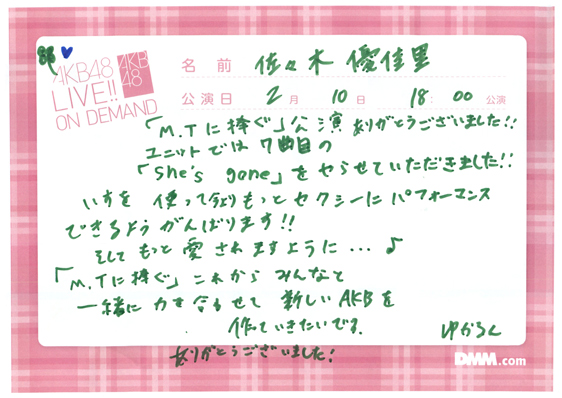 AKB48
LIVE!!
ON DEMAND
AKB
48
名 前 佐々木 優佳里
公演日 2月 10日 18:00 公演
「M.Tに捧ぐ」公演ありがとうございました!!
ユニットでは7曲目の
「She's gone」をやらせていただきました!!
いすを 使って今よりもっとセクシーに パフォーマンス
できるよう がんばります!!
そして もっと 愛 されますように...♪
「M.Tに捧ぐ」これから みんなと
一緒に 力を合わせて 新しいAKBを
作っていきたいです。
ゆかるん
ありがとうございました!
DMM.com